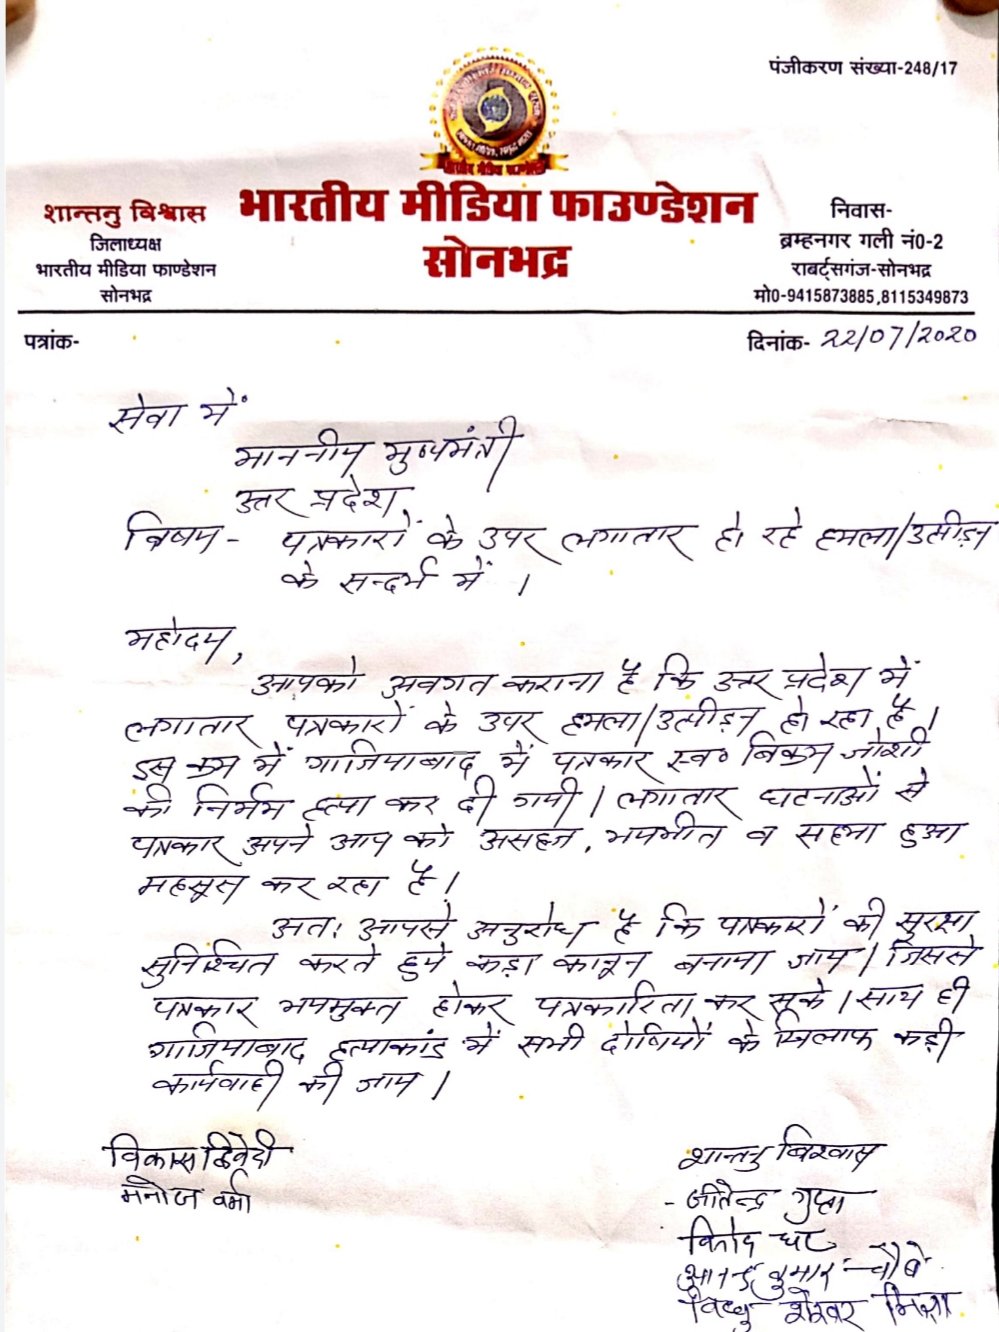 पंजीकरण संख्या-248/17
भारतीय मीडिया फाउण्डेशन
सोनभद्र
शान्तनु विश्वास
जिलाध्यक्ष
भारतीय मीडिया फाण्डेशन
सोनभद्र
निवास-
ब्रम्हनगर गली नं0-2
राबर्ट्सगंज-सोनभद्र
मो0-9415873885,8115349873
पत्रांक-
दिनांक- 22/07/2020
सेवा में
माननीय मुख्यमंत्री
उत्तर प्रदेश
विषय- पत्रकारों के उपर लगातार हो रहे हमला/उत्पीड़न
के सन्दर्भ में ।
महोदय,
आपको अवगत कराना है कि उत्तर प्रदेश में
लगातार पत्रकारों के उपर हमला/उत्पीड़न हो रहा है।
इस क्रम में गाजियाबाद में पत्रकार स्व० विक्रम जोशी
की निर्मम हत्या कर दी गयी। लगातार घटनाओं से
पत्रकार अपने आप को असहज, भयभीत व सहमा हुआ
महसूस कर रहा है।
अतः आपसे अनुरोध है कि पत्रकारों की सुरक्षा
सुनिश्चित करते हुये कड़ा कानून बनाया जाय। जिससे
पत्रकार भयमुक्त होकर पत्रकारिता कर सके। साथ ही
गाजियाबाद हत्याकांड में सभी दोषियों के खिलाफ कड़ी
कार्यवाही की जाय।
विकास द्विवेदी
मनोज वर्मा
शान्तनु बिश्वास
- जीतेन्द्र गुप्ता
विनोद धर
आनन्द कुमार चौबे
विधु शेखर मिश्रा